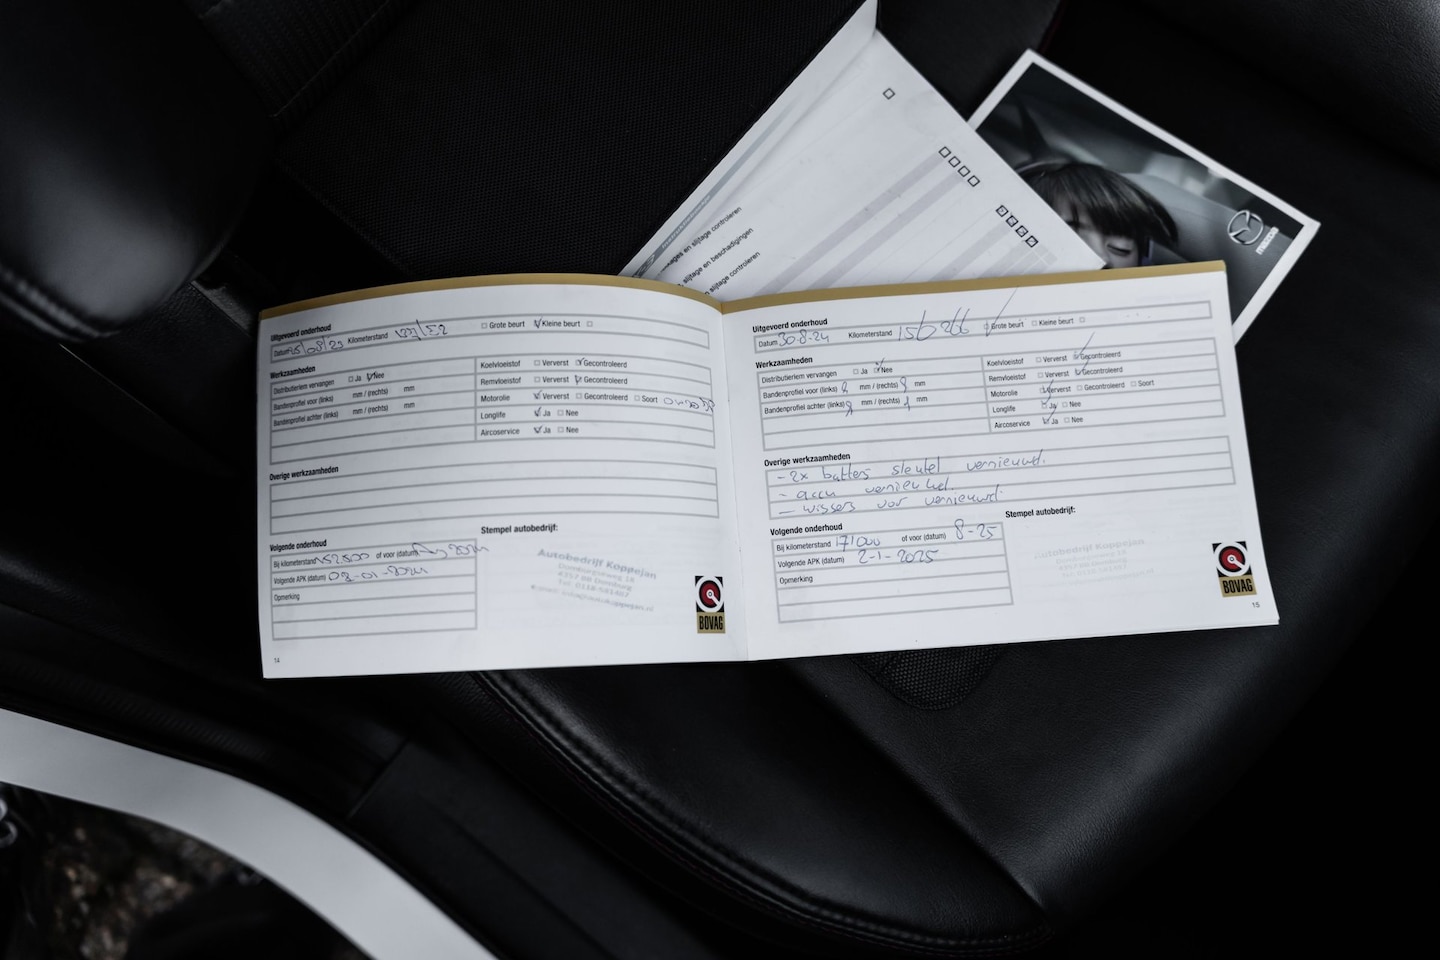 slijtage controleren
slijtage en beschadigingen
slijtage controleren
mazda
Uitgevoerd onderhoud
Datum /08/23 Kilometerstand □ Grote beurt ☑ Kleine beurt □
Werkzaamheden
Distributieriem vervangen □ Ja ☑ Nee
Bandenprofiel voor (links) mm / (rechts) mm
Bandenprofiel achter (links) mm / (rechts) mm
Koelvloeistof □ Ververst ☑ Gecontroleerd
Remvloeistof □ Ververst ☑ Gecontroleerd
Motorolie ☑ Ververst □ Gecontroleerd □ Soort
Longlife ☑ Ja □ Nee
Aircoservice ☑ Ja □ Nee
Overige werkzaamheden
Volgende onderhoud
Bij kilometerstand of voor (datum)
Volgende APK (datum)
Opmerking
Stempel autobedrijf:
Autobedrijf Koppejan
Domburgseweg 18
4357 BB Domburg
BOVAG
14
Uitgevoerd onderhoud
Datum 30-8-24 Kilometerstand 156266 ☑ Grote beurt □ Kleine beurt □
Werkzaamheden
Distributieriem vervangen □ Ja ☑ Nee
Bandenprofiel voor (links) mm / (rechts) mm
Bandenprofiel achter (links) mm / (rechts) mm
Koelvloeistof □ Ververst ☑ Gecontroleerd
Remvloeistof □ Ververst ☑ Gecontroleerd
Motorolie ☑ Ververst □ Gecontroleerd □ Soort
Longlife ☑ Ja □ Nee
Aircoservice ☑ Ja □ Nee
Overige werkzaamheden
- 2x sleutel vernieuwd.
- accu vernieuwd.
- wissers voor vernieuwd.
Volgende onderhoud
Bij kilometerstand 171000 of voor (datum) 8-25
Volgende APK (datum) 2-1-2025
Opmerking
Stempel autobedrijf:
Autobedrijf Koppejan
BOVAG
15